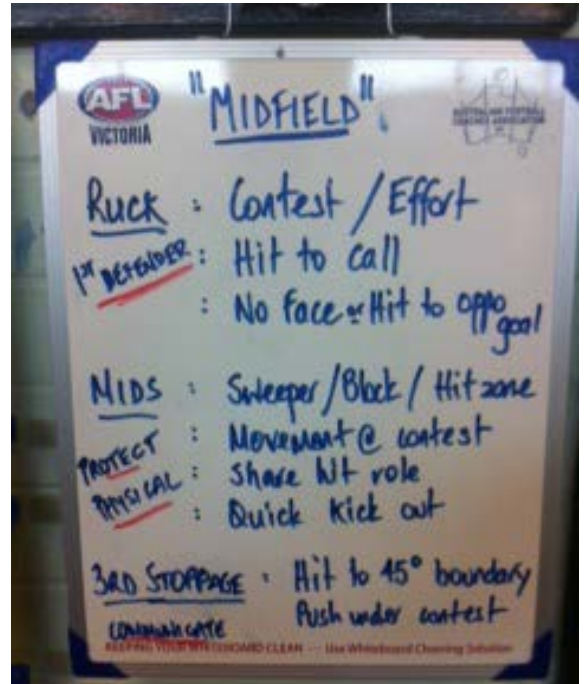 AFL
VICTORIA
"MIDFIELD"
AUSTRALIAN FOOTBALL
COACHES ASSOCIATION
RUCK : Contest / Effort
1ST DEFENDER : Hit to call
: No Face or Hit to oppo goal
MIDS : Sweeper / Block / Hit zone
PROTECT : Movement @ contest
PHYSICAL : Share hit role
: Quick kick out
3RD STOPPAGE : Hit to 45° boundary
Push under contest
COMMUNICATE
KEEPING YOUR WHITEBOARD CLEAN - Use Whiteboard Cleaning Solution